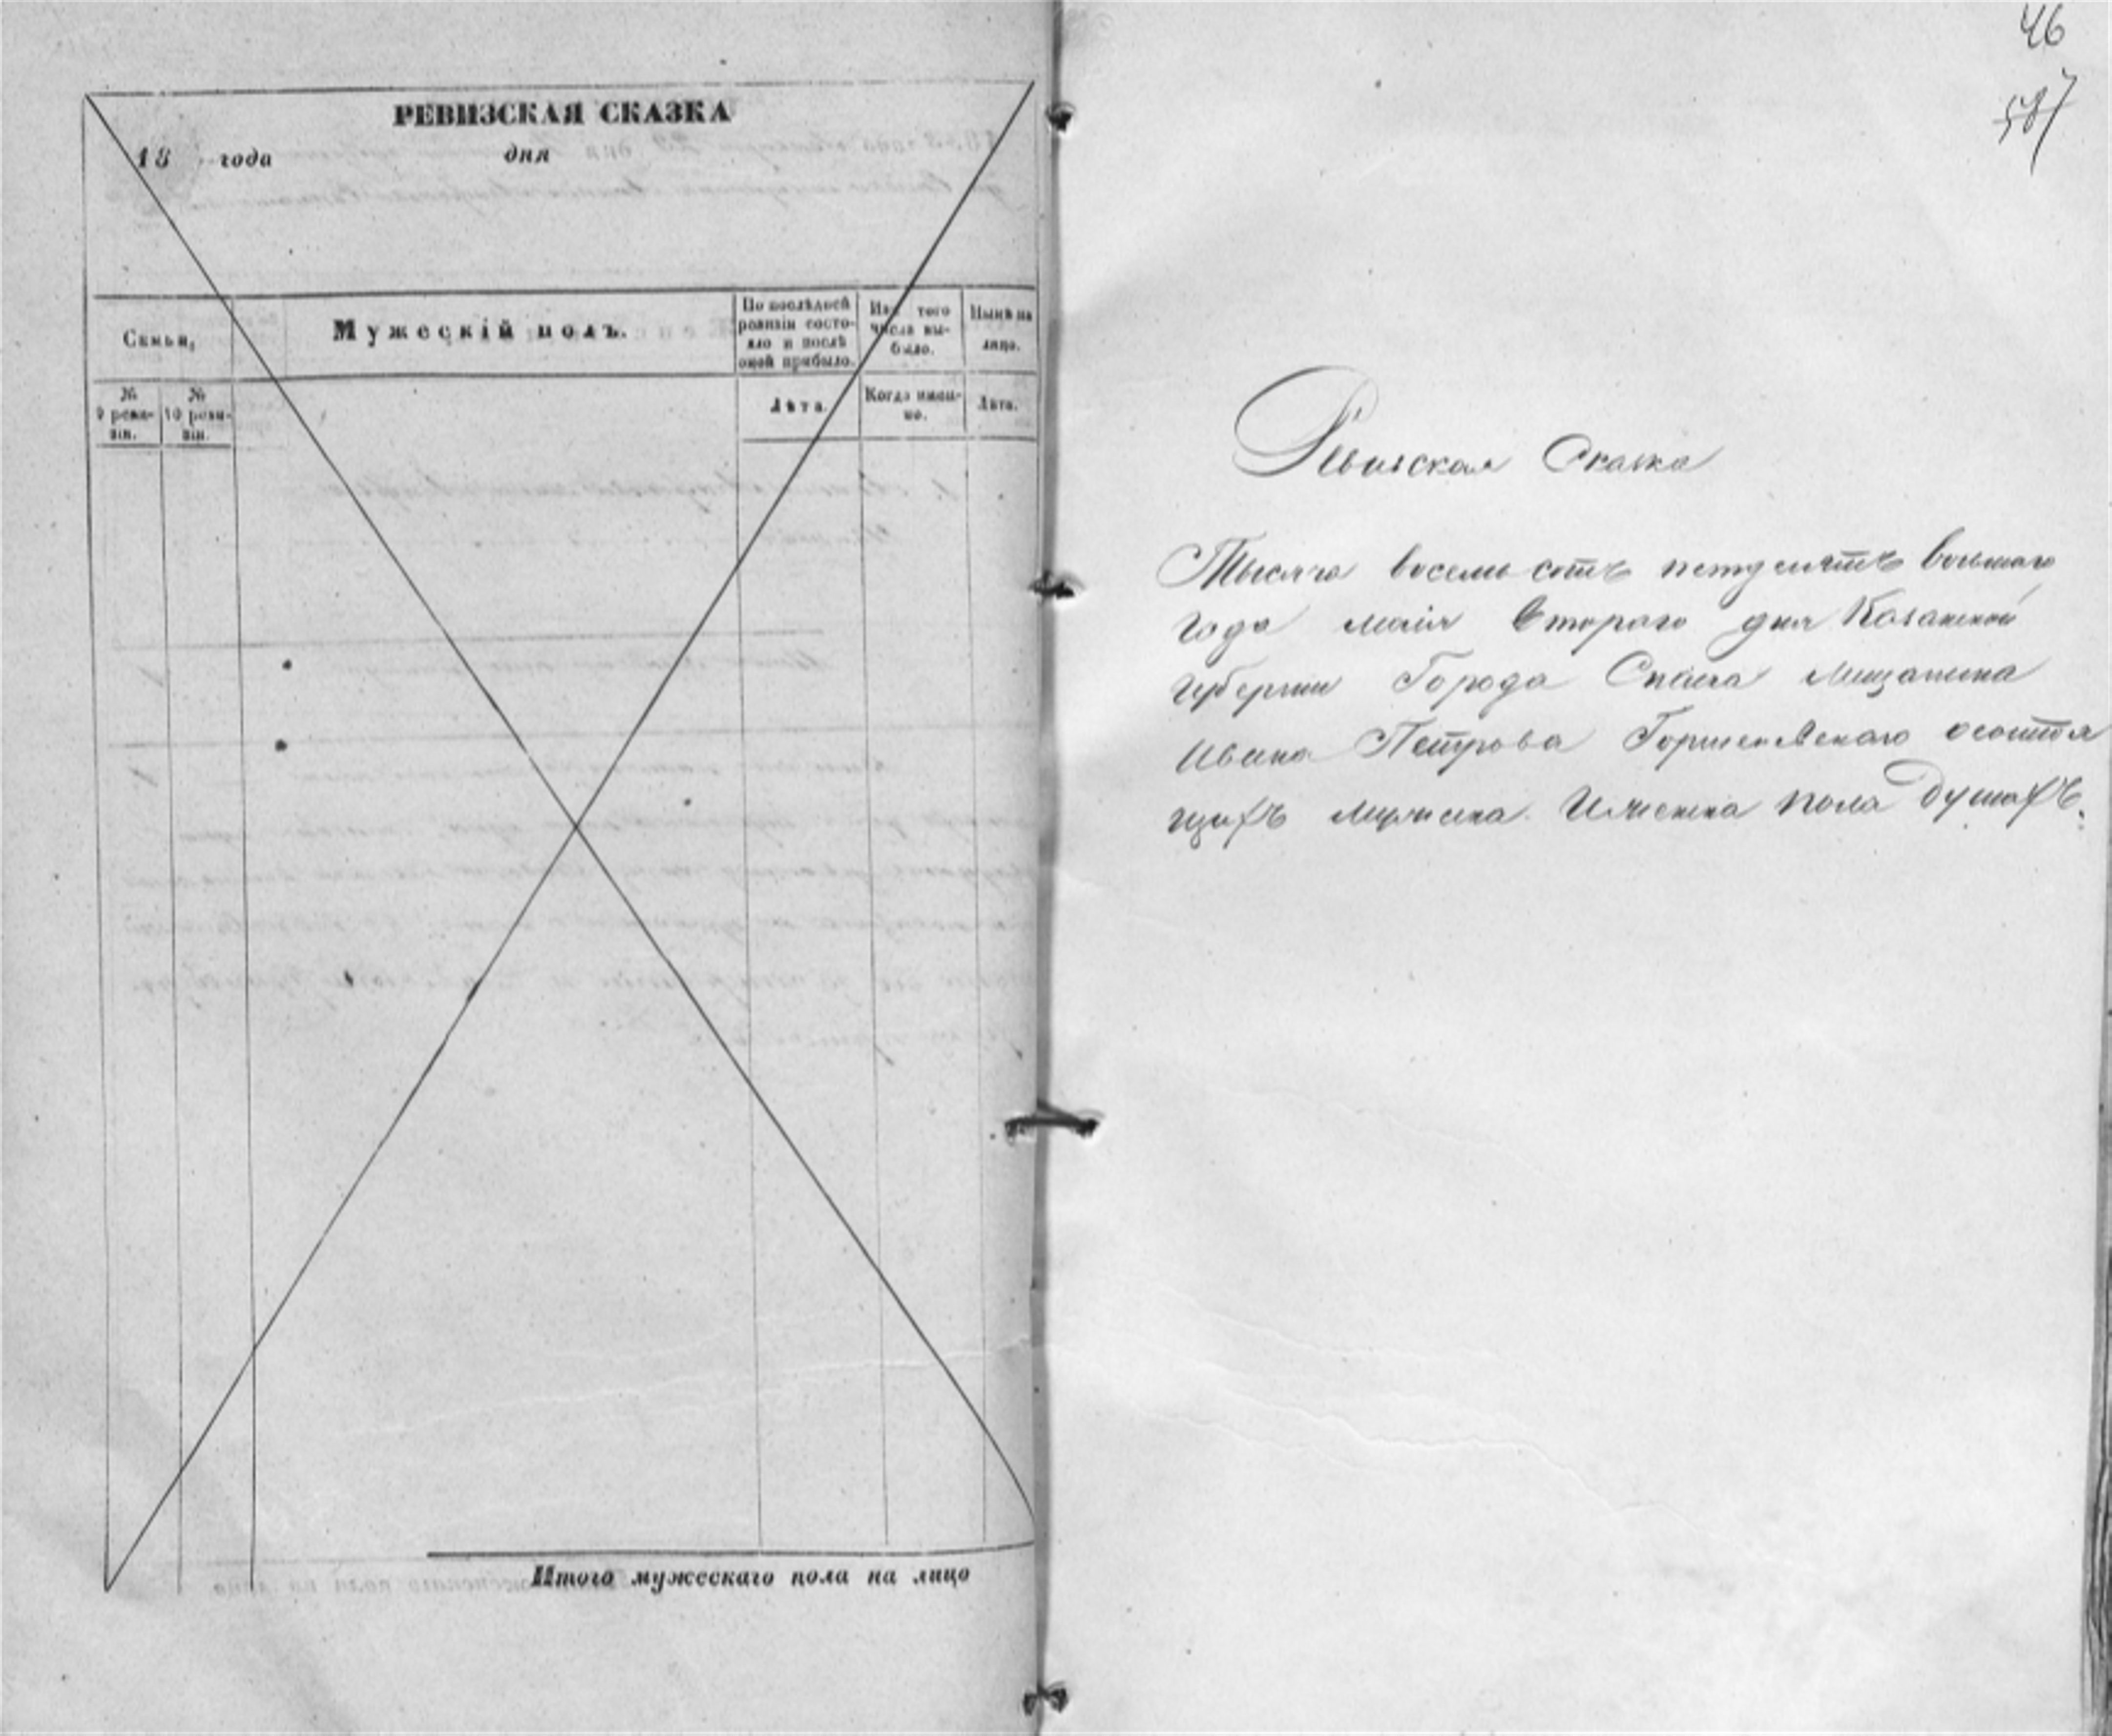 РЕВИЗСКАЯ СКАЗКА
18 года дня
Семьи,
Мужескій полъ.
По послѣдней
ревизіи состо-
яло и послѣ
оной прибыло.
Изъ того
числа вы-
было.
Нынѣ на
лицо.
№
9 реви-
зіи.
№
10 реви-
зіи.
Лѣта.
Когда имен-
но.
Лѣта.
Итого мужескаго пола на лицо
46
587
Ревизская Сказка
Тысяча восемь сотъ пятдесятъ восьмаго
года маія второго дня Казанской
губернии Города Спаса мещанина
Ивана Петрова Горшеновскаго осостоя
щихъ мужска. Иженска пола душахъ.